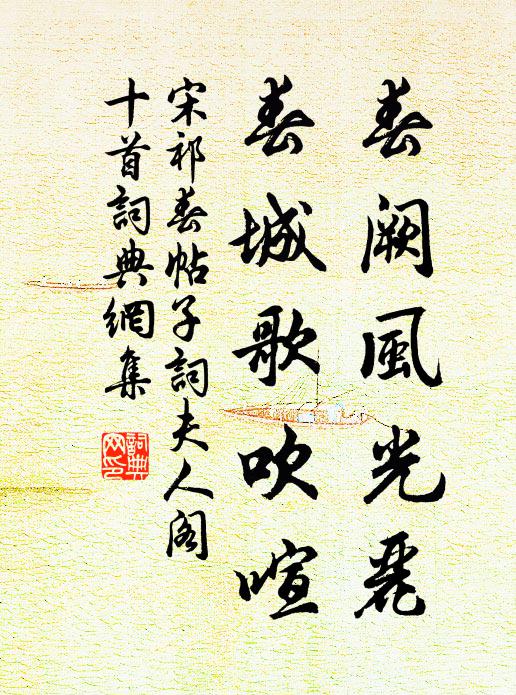 春闕風光麗
春城歌吹喧
宋祁春帖子詞夫人阁
十首詞典網集
詞典网印